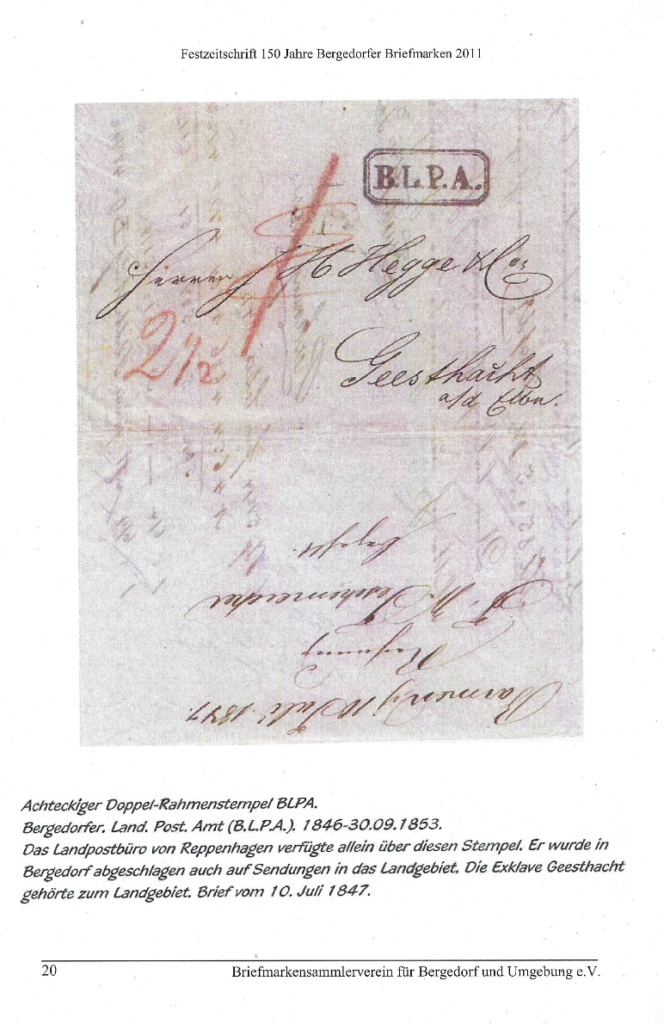 Festzeitschrift 150 Jahre Bergedorfer Briefmarken 2011
B.L.P.A.
Herren J H Hegge & Co:
2 1/2
Geesthacht
a/d Elbe.
Barmen, 10 Juli 1847.
Achteckiger Doppel-Rahmenstempel BLPA.
Bergedorfer. Land. Post. Amt (B.L.P.A.). 1846-30.09.1853.
Das Landpostbüro von Reppenhagen verfügte allein über diesen Stempel. Er wurde in
Bergedorf abgeschlagen auch auf Sendungen in das Landgebiet. Die Exklave Geesthacht
gehörte zum Landgebiet. Brief vom 10. Juli 1847.
20
Briefmarkensammlerverein für Bergedorf und Umgebung e.V.